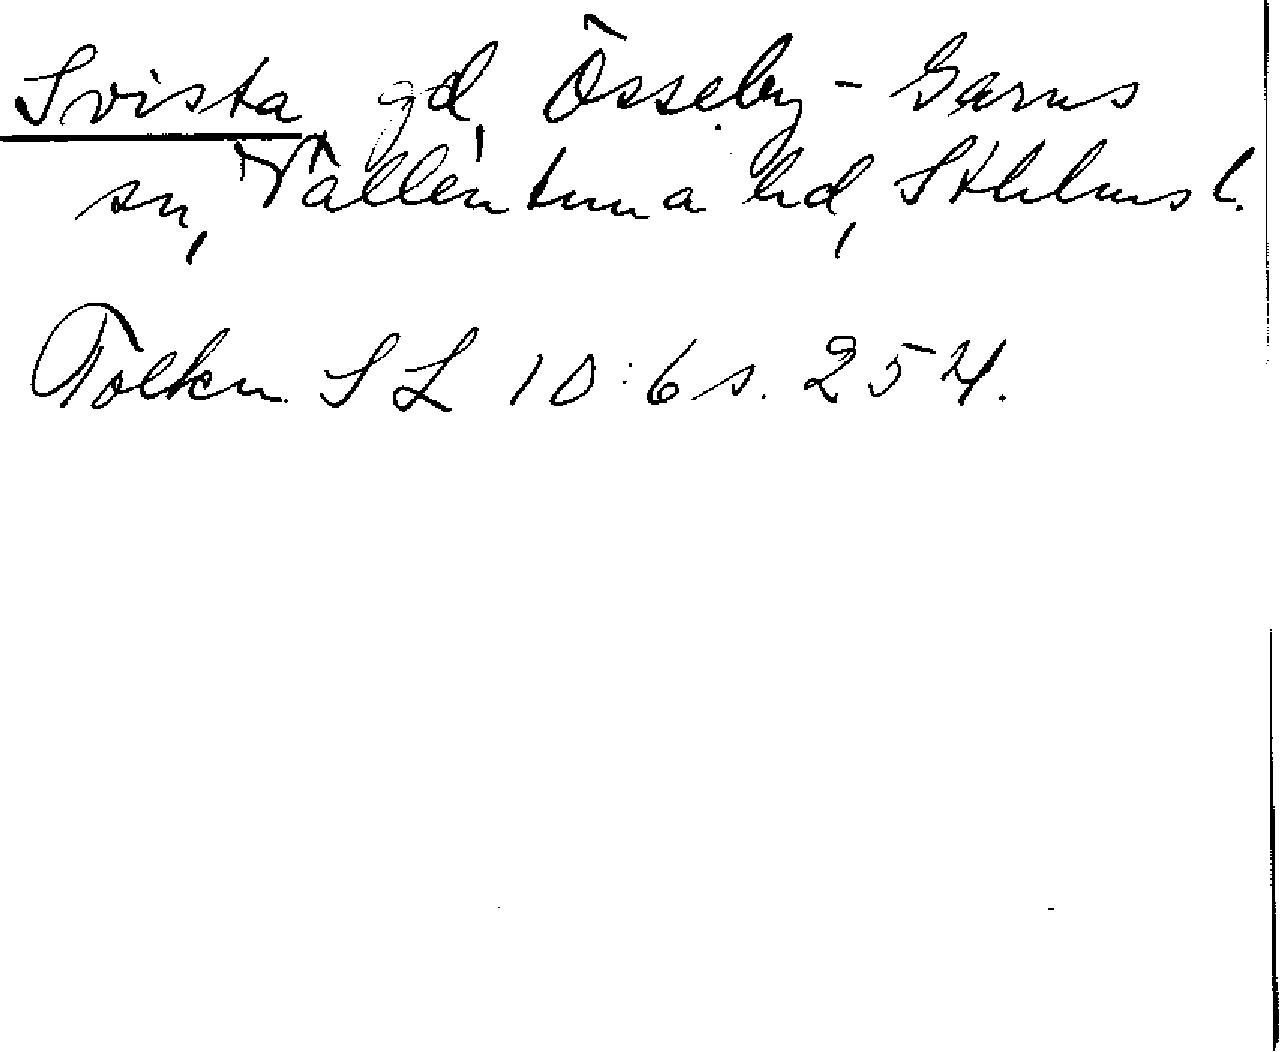 Svista gd, Össeby-Garns
sn, Vallentuna hd, Sthlms l.
Tolkn. SL 10:6 s. 254.